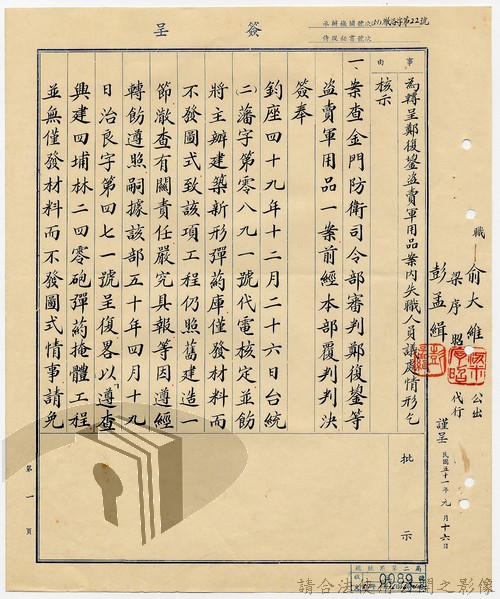 簽呈
承辦機關號次(51)駿洛字第22號
侍從秘書號次
事由
為轉呈鄭復鋆盜賣軍用品案內失職人員議處情形乞
核示
職 俞大維 公出
梁序昭 代行
彭孟緝 謹呈
民國五十一年元月十六日
一、案查金門防衛司令部審判鄭復鋆等
盜賣軍用品一案前經本部覆判判決
簽奉
鈞座四十九年十二月二十六日台統
(二)藩字第零八九一號代電核定並飭
將主辦建築新形彈葯庫僅發材料而
不發圖式致該項工程仍照舊建造一
節澈查有關責任嚴究具報等因遵經
轉飭遵照嗣據該部五十年四月十九
日治良字第四七一號呈復畧以「遵查
興建四埔林二四零砲彈葯掩體工程
並無僅發材料而不發圖式情事請免
批示
第一頁
總統府第二局
0089
請合法使用公開之影像